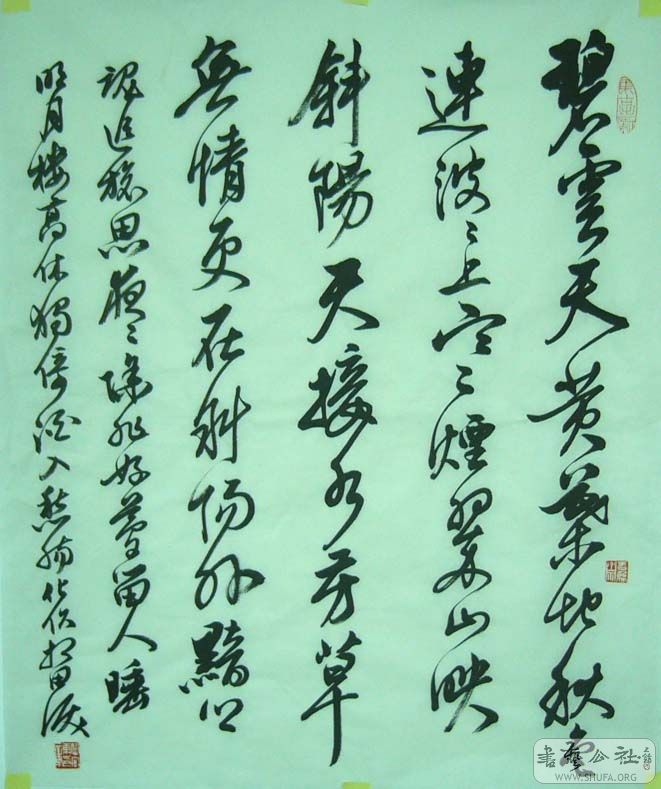 碧雲天黄葉地秋色
連波〻上寒煙翠山映
斜陽天接水芳草
無情更在斜陽外黯鄉
魂追旅思夜〻除非好夢留人睡
明月樓高休獨倚酒入愁腸化作相思淚
書藝公社
WWW.SHUFA.ORG